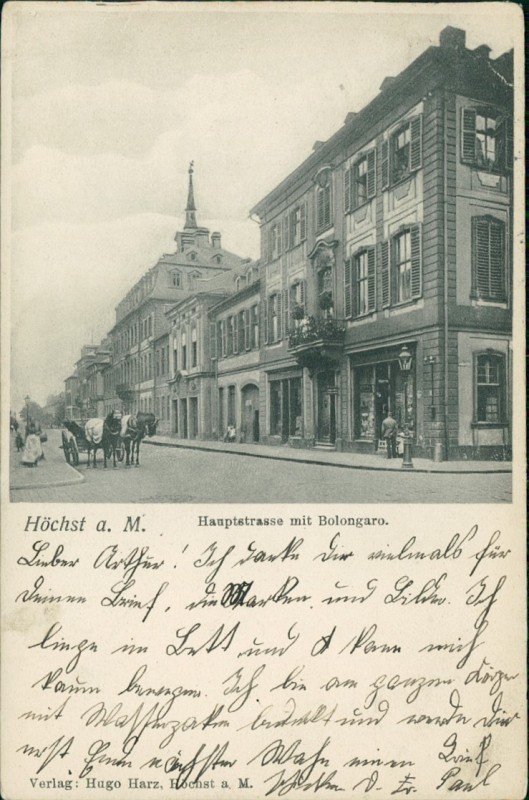 Höchst a. M. Hauptstrasse mit Bolongaro.
Lieber Arthur! Ich danke Dir vielmals für
Deinen Brief, die Marken und Bilder. Ich
liege im Bett und kann mich
kaum bewegen. Ich bin am ganzen Körper
mit bedeckt und werde Dir
erst Ende nächster einen Brief
Verlag: Hugo Harz, Höchst a. M. Paul